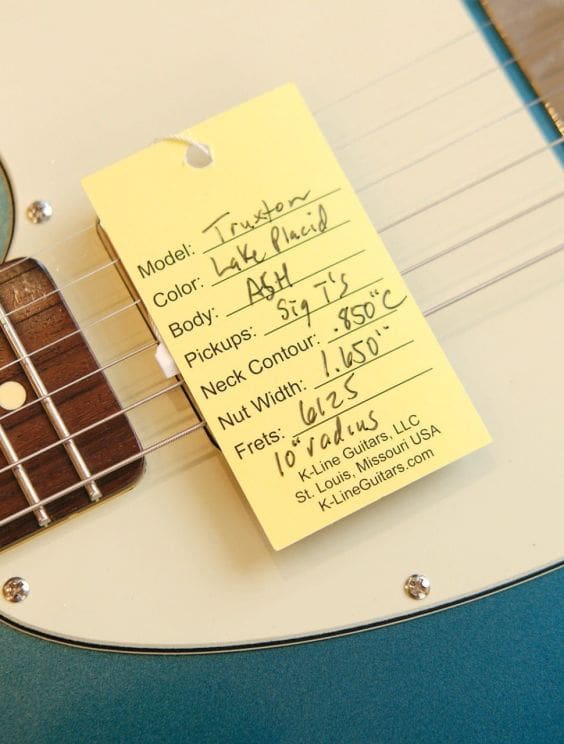 Model: Truxton
Color: Lake Placid
Body: ASH
Pickups: Sig T's
Neck Contour: .850" C
Nut Width: 1.650"
Frets: 6125
10" radius
K-Line Guitars, LLC
St. Louis, Missouri USA
K-LineGuitars.com